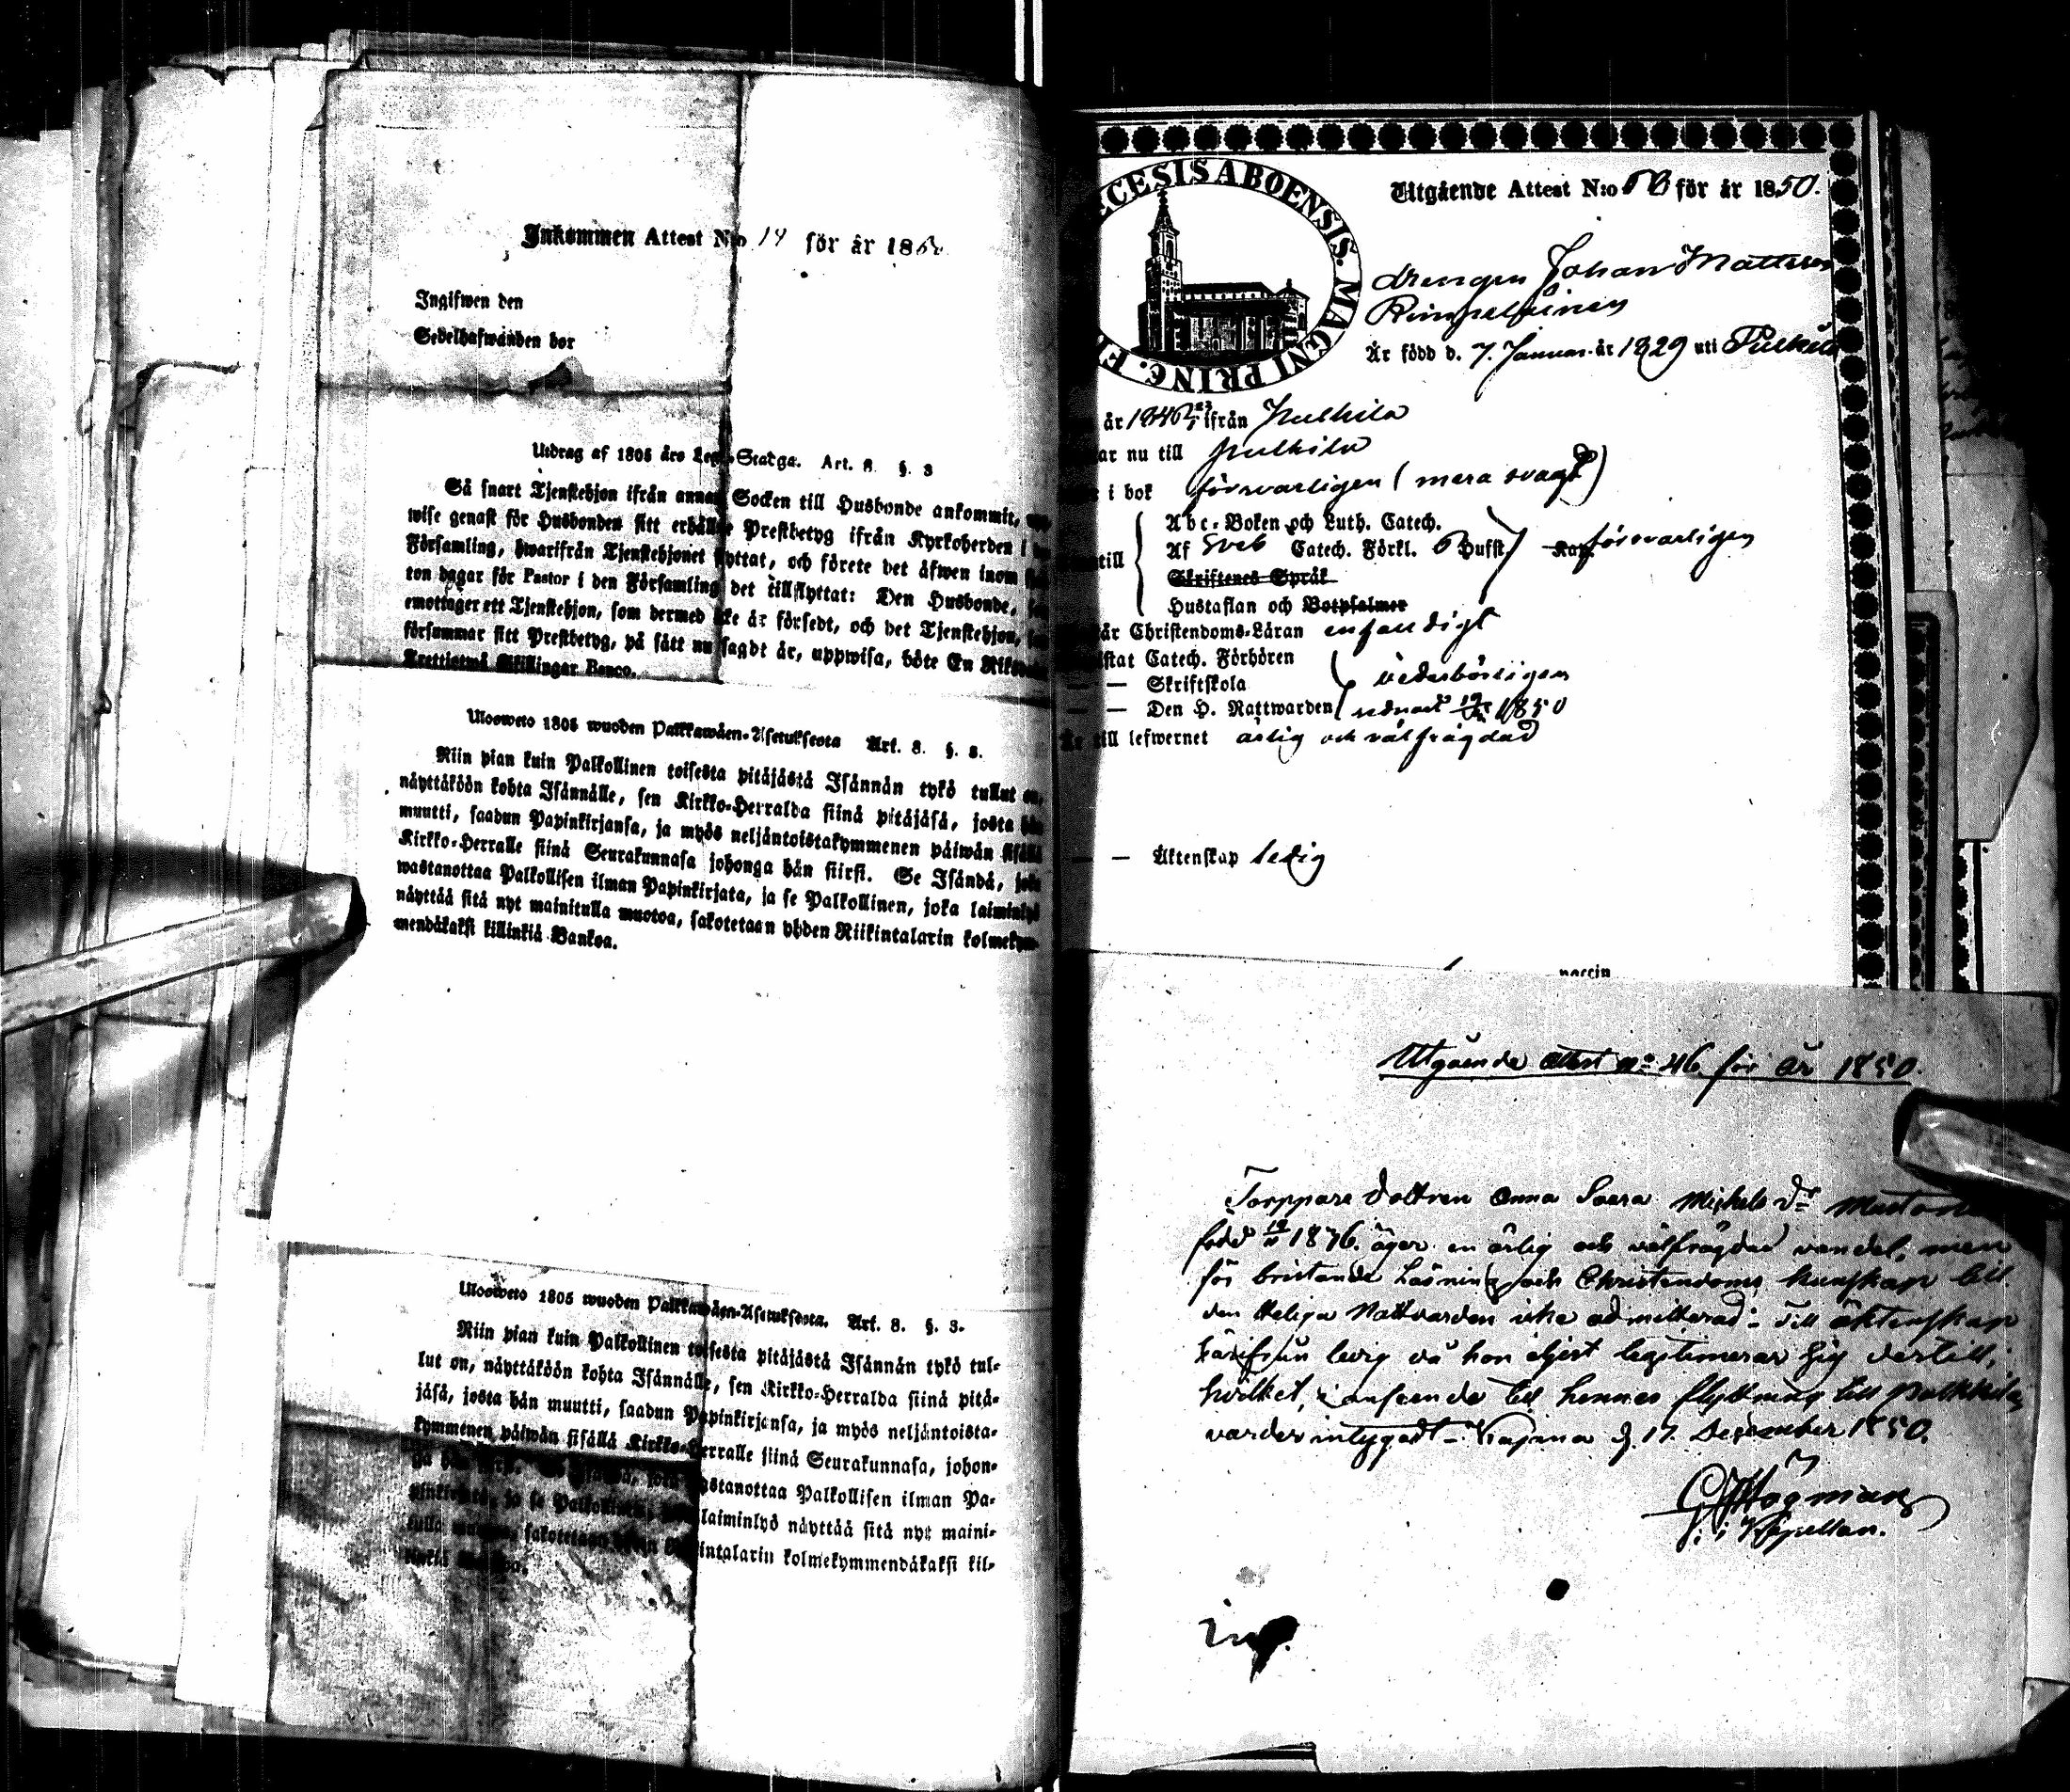 Inkommen Attest N:o 14 för år 18
Ingifwen den
Sedelhafwanden bor
Utdrag af 1805 års Lego-Stadga. Art. 8. §. 3
Så snart Tjenstehjon ifrån annan Socken till Husbonde ankommit,
wise genast för Husbonden sitt erhållne Prestbetyg ifrån Kyrkoherden i
Församling, hwarifrån Tjenstehjonet flyttat, och förete det äfwen inom
ton dagar för Pastor i den Församling det tillflyttat: Den Husbonde,
emottager ett Tjenstehjon, som dermed icke är försedt, och det Tjenstehjon,
försummar sitt Prestbetyg, på sätt nu sagdt är, uppwisa, böte En Riksdaler
Trettiotwå Skillingar Banco.
Ulosweto 1805 wuoden Palkkawäen-Asetuksesta Art. 8. §. 3.
Niin pian kuin Palkollinen toisesta pitäjästä Isännän tykö tullut on,
näyttäköön kohta Isännälle, sen Kirkko-Herralda siinä pitäjäsä, josta hän
muutti, saadun Papinkirjansa, ja myös neljäntoistakymmenen päiwän sisällä
Kirkko-Herralle siinä Seurakunnasa johonga hän siirsi. Se Isändä, joka
wastanottaa Palkollisen ilman Papinkirjata, ja se Palkollinen, joka laiminlyö
näyttää sitä nyt mainitulla muotoa, sakotetaan yhden Riikintalarin kolmekym-
mendäkaksi killinkiä Bankoa.
Ulosweto 1805 wuoden Palkkawäen-Asetuksesta. Art. 8. §. 3.
Niin pian kuin Palkollinen toisesta pitäjästä Isännän tykö tul-
lut on, näyttäköön kohta Isännälle, sen Kirkko-Herralda siinä pitä-
jäsä, josta hän muutti, saadun Papinkirjansa, ja myös neljäntoista-
kymmenen päiwän sisällä Kirkko-Herralle siinä Seurakunnasa, johon-
ga hän wastanottaa Palkollisen ilman Pa-
pinkirjata, ja se Palkollinen, laiminlyö näyttää sitä nyt maini-
tulla muotoa, sakotetaan yhden Riikintalarin kolmekymmendäkaksi kil-
linkiä
CESIS ABOENSIS. MAGNI PRINC. FI
Utgående Attest N:o för år 1850.
drengen Johan Mattsson
Rimpeläinen
Är född d. 7. Januar. år 1829 uti Pulkila
år 1846 ifrån Pulkila
ar nu till Pulkila
i bok försvarligen (mera svagt)
Abc-Boken och Luth. Catech.
till Af Sveb Catech. Förkl. 6 Hufst. försvarligen
Skriftenes Språk
Hustaflan och Botpsalmer
år Christendoms-Läran enfaldigt
istat Catech. Förhören
— — Skriftskola vederbörligen
— — Den H. Nattwarden senast 1850
till lefwernet ärlig och välfrägdad
— — Äktenskap ledig
Utgående attest n:o 46 för år 1850.
Torppare dottren Anna Saara Michels d:r
född 1876. äger en ärlig och välfrägdad vandel, men
för bristande Läsning och Christendoms kunskap till
den Heliga Nattvarden icke admitterad; Till äktenskap
härifrån ledig då hon eljest legitimerar sig dertill;
hvilket, i anseende till hennes flyttning till Pulkkila,
varder intygadt – Kajana d. 17. December 1850.
C Högman
v. i. Kapellan.